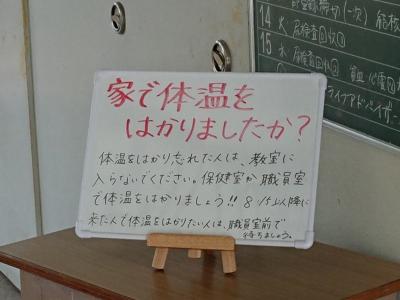 家で体温を
はかりましたか?
体温をはかり忘れた人は、教室に
入らないでください。保健室か職員室
で体温をはかりましょう!! 8:15以降に
来た人で体温をはかりたい人は、職員室前で
待ちましょう。
14 火 尿検査回収②
15 水 尿検査回収③